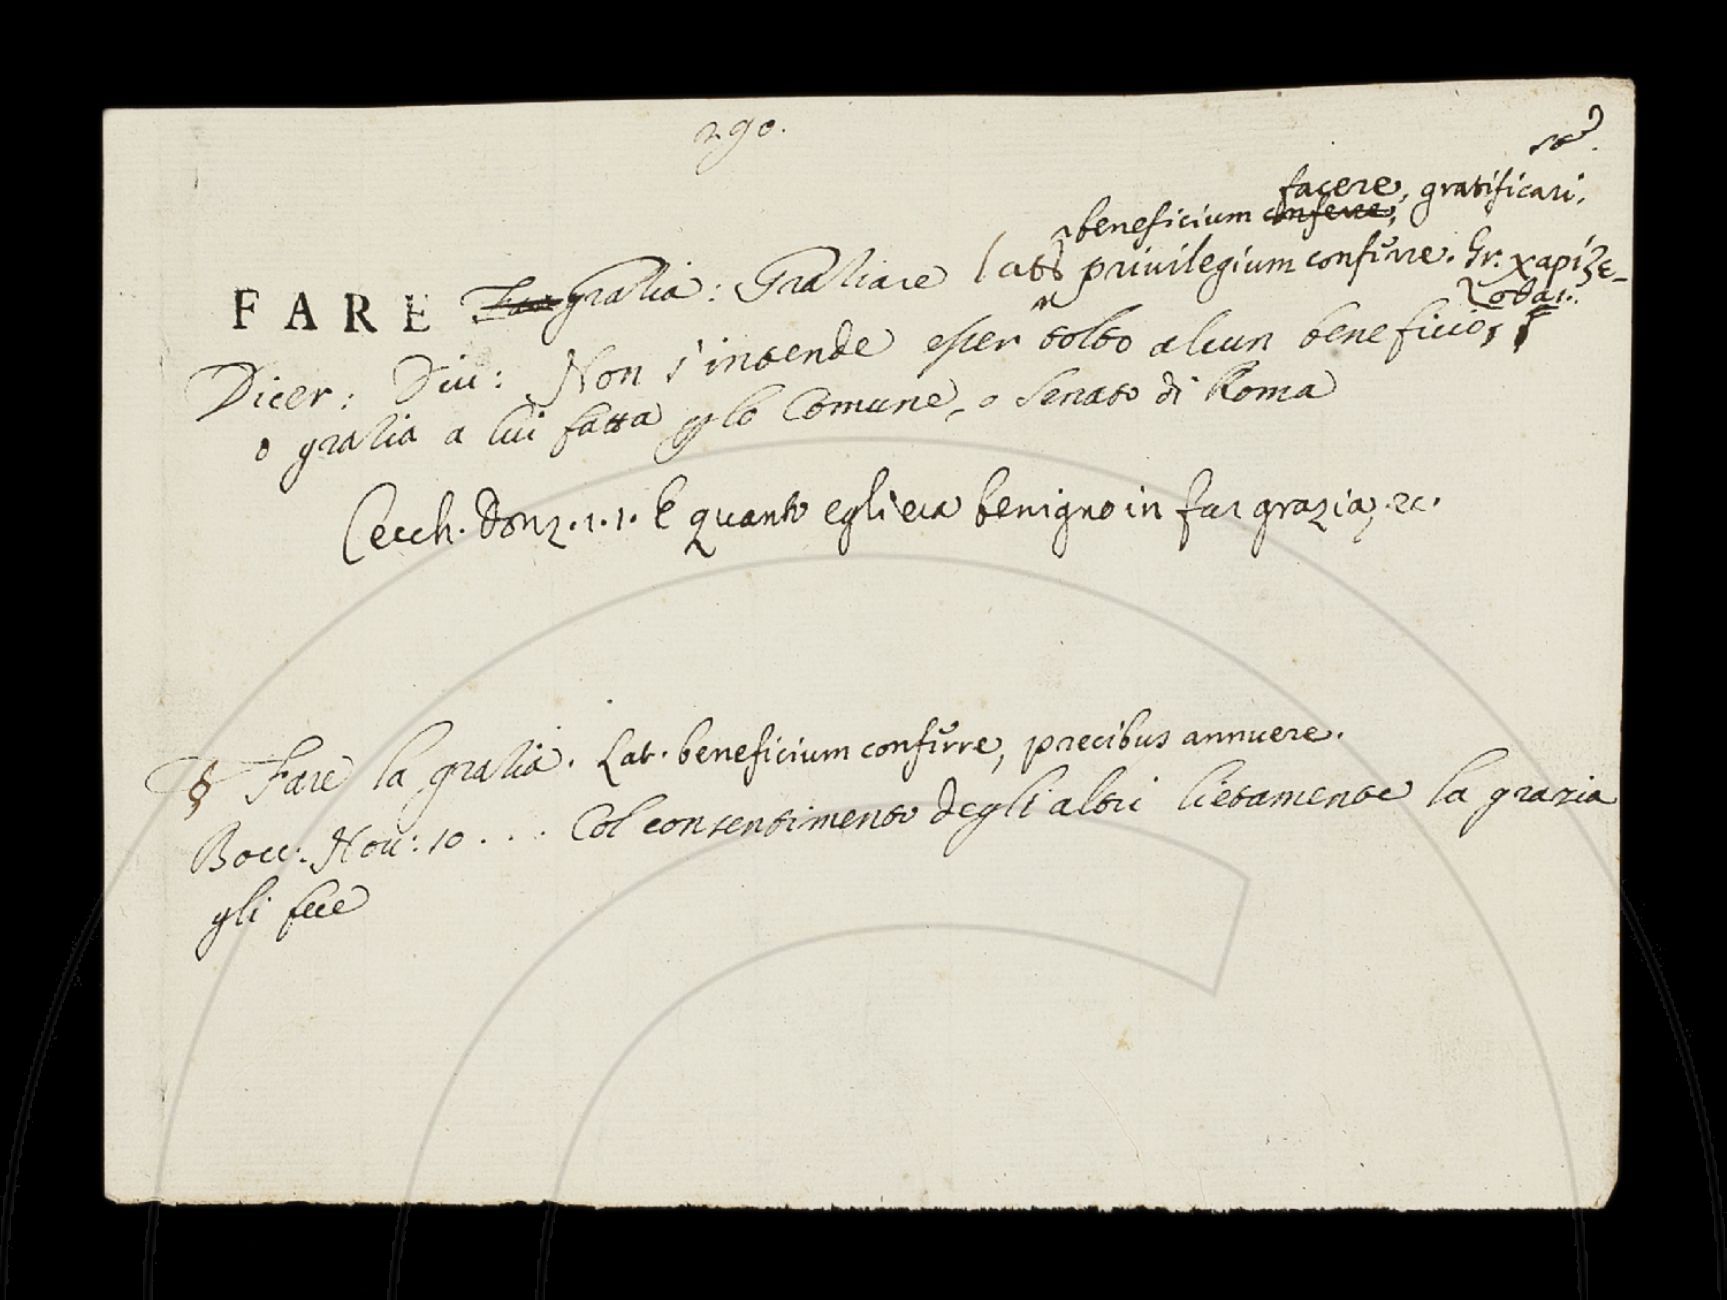 290.
facere, gratificari,
beneficium conferre,
FARE Fare gratia: Gratiare Lat. privilegium conferre. Gr. χαρίζε-
σθαι.
Dicer: Div: Non s'intende esser tolto alcun beneficio,
o gratia a lui fatta p lo Comune, o Senato di Roma
Cecch. Donz. 1. 1. E quanto egli era benigno in far grazia, ec.
§ Fare la gratia. Lat. beneficium conferre, precibus annuere.
Bocc. Nov: 10 . . . Col consentimento degli altri lietamente la grazia
gli fece